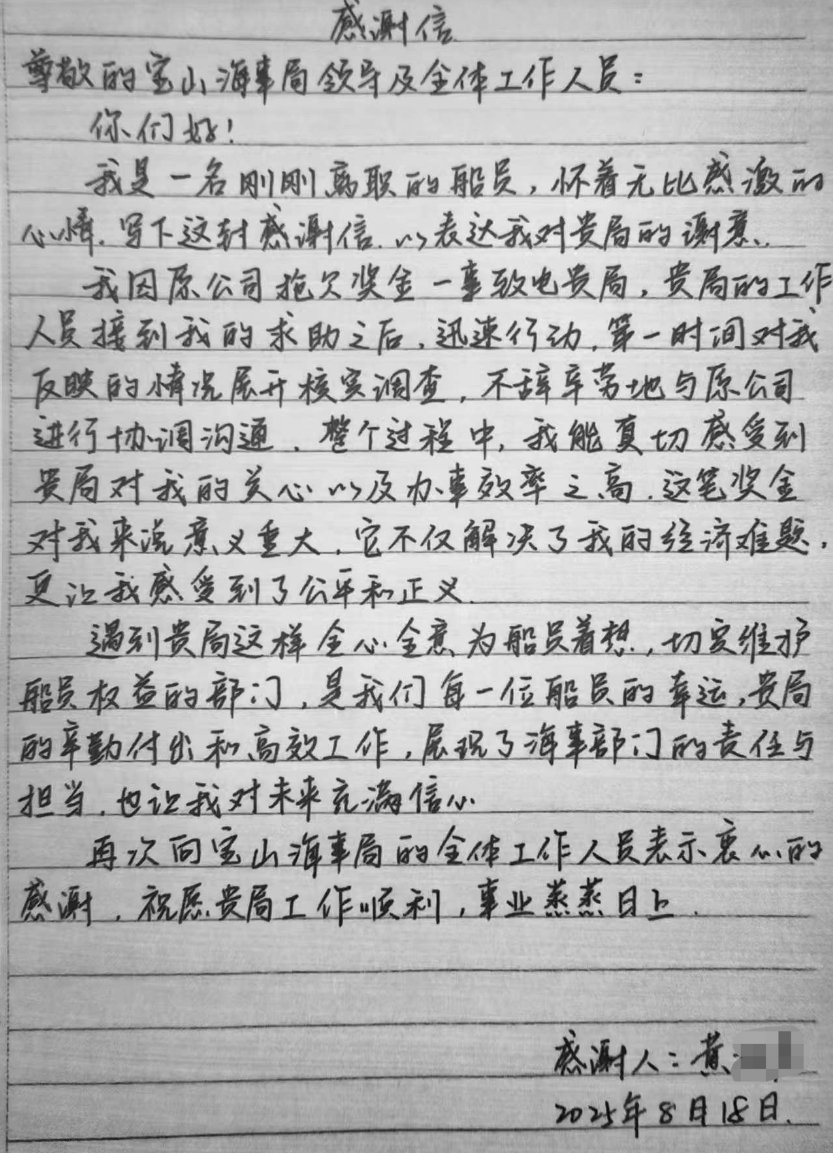 感谢信
尊敬的宝山海事局领导及全体工作人员：
你们好！
我是一名刚刚离职的船员，怀着无比感激的
心情，写下这封感谢信，以表达我对贵局的谢意。
我因原公司拖欠奖金一事致电贵局，贵局的工作
人员接到我的求助之后，迅速行动，第一时间对我
反映的情况展开核实调查，不辞辛劳地与原公司
进行协调沟通，整个过程中，我能真切感受到
贵局对我的关心以及办事效率之高，这笔奖金
对我来说意义重大，它不仅解决了我的经济难题，
更让我感受到了公平和正义。
遇到贵局这样全心全意为船员着想，切实维护
船员权益的部门，是我们每一位船员的幸运，贵局
的辛勤付出和高效工作，展现了海事部门的责任与
担当，也让我对未来充满信心
再次向宝山海事局的全体工作人员表示衷心的
感谢，祝愿贵局工作顺利，事业蒸蒸日上.
感谢人：黄
2025年8月18日.